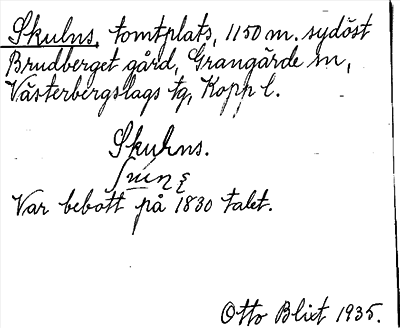 Skulns, tomtplats, 1150 m. sydöst
Brudberget gård, Grangärde sn,
Västerbergslags tg, Kopp l.
Skuhns.
Var bebott på 1830 talet.
Otto Blixt 1935.